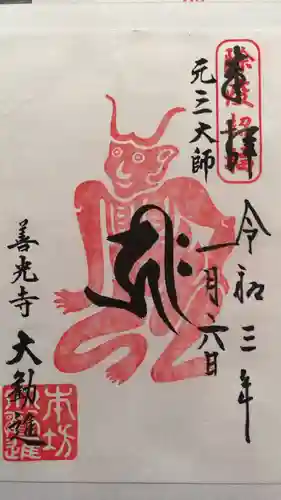 奉拝
令和三年
一月六日
元三大師
善光寺
大勧進